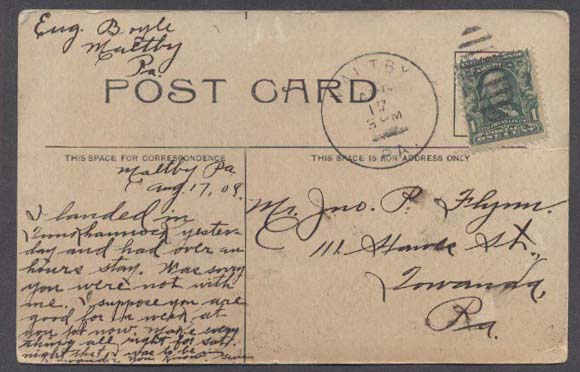 Eug. Boyle
Maltby
Pa.
POST CARD
MALTBY
AUG
17
PM
PA.
1
POSTAGE
ONE CENT
THIS SPACE FOR CORRESPONDENCE
THIS SPACE IS FOR ADDRESS ONLY
Maltby Pa.
Aug. 17, 08.
I landed in
Tunkhannock yester-
day and had over an
hours stay. Was sorry
you were not with
me. I suppose you are
good for the week at
your job now. Make every
thing all right for Sat.
night that I was to be
you know
Mr. Jno. P. Flynn.
111 St.
Towanda,
Pa.